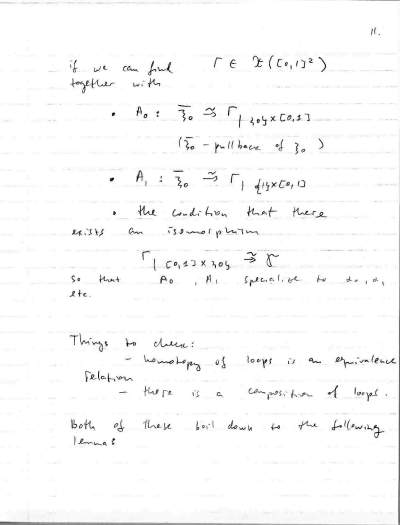 11.
if we can find Γ ∈ X([0,1]²)
together with
• A₀ : ξ̄₀ ⥲ Γ|{0}×[0,1]
(ξ̄₀ - pullback of ξ₀)
• A₁ : ξ̄₀ ⥲ Γ|{1}×[0,1]
• the condition that there
exists an isomorphism
Γ|[0,1]×{0} ⥲ γ
so that A₀, A₁ specialize to α₀, α₁
etc.
Things to check:
- homotopy of loops is an equivalence
relation
- there is a composition of loops.
Both of these boil down to the following
lemmas